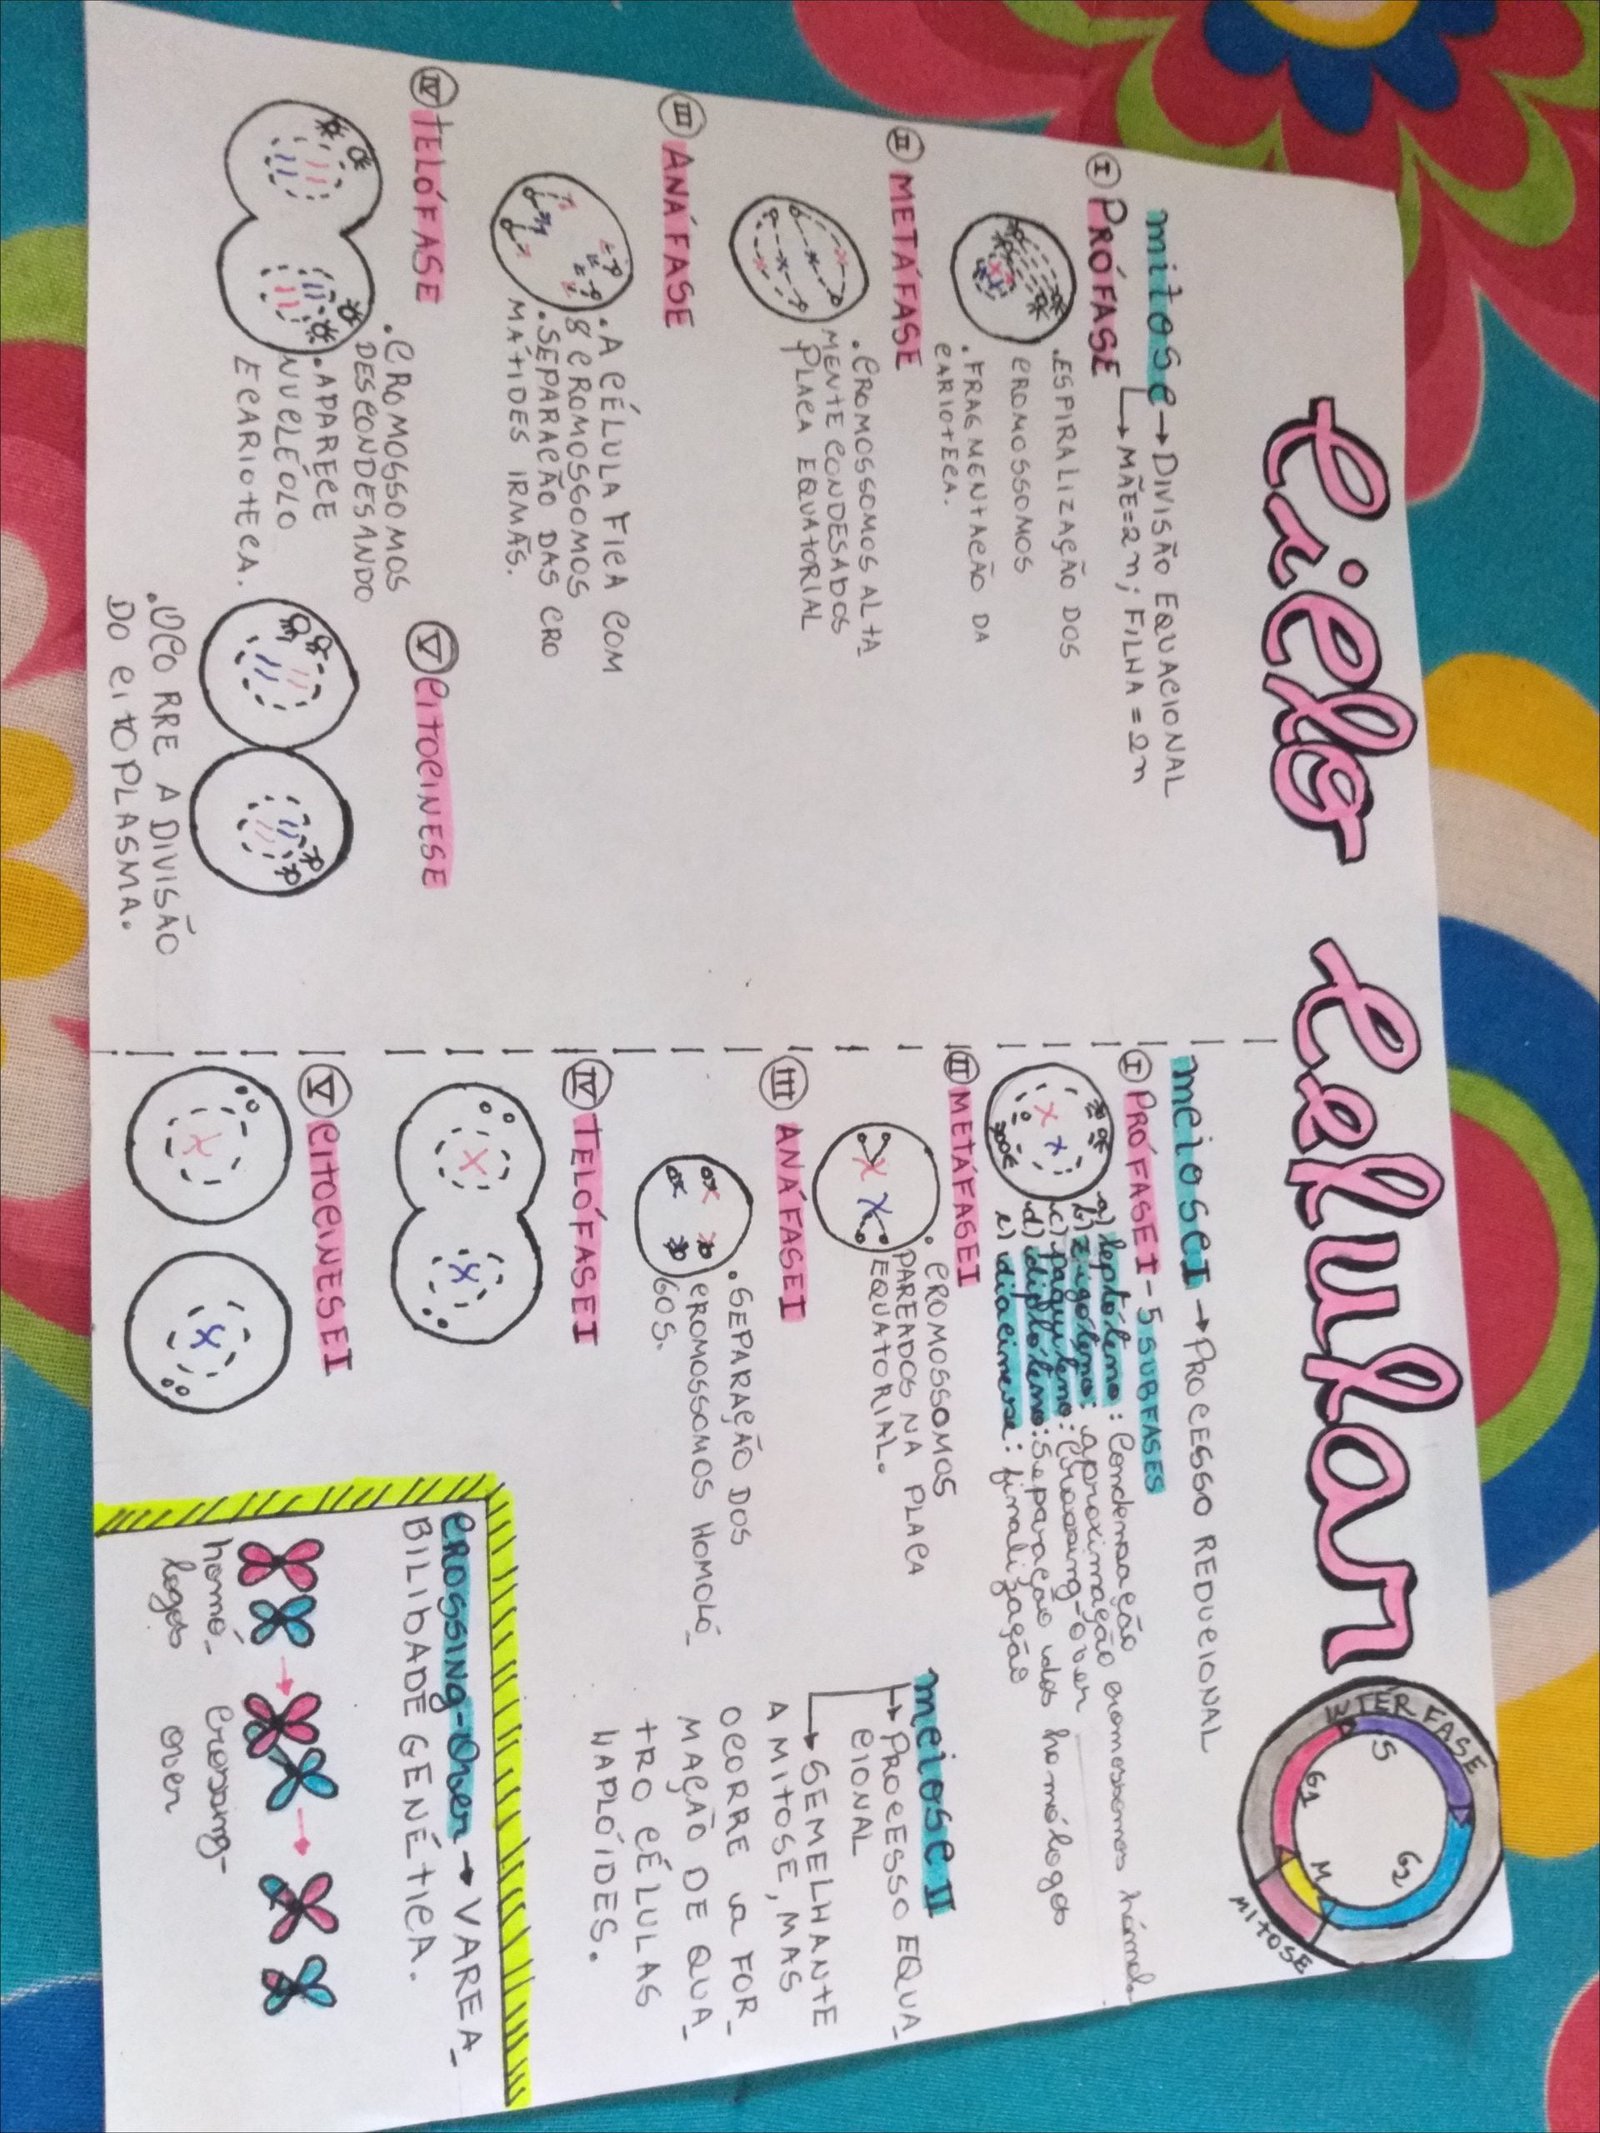 Ciclo Celular
INTÉRFASE
S
G1
G2
M
MITOSE
mitose → DIVISÃO EQUACIONAL
→ MÃE=2n; FILHA=2n
I PRÓFASE
.ESPIRALIZAÇÃO DOS
CROMOSSOMOS
.FRAGMENTAÇÃO DA
CARIOTECA.
II METÁFASE
.CROMOSSOMOS ALTA
MENTE CONDESADOS
PLACA EQUATORIAL
III ANÁFASE
.A CÉLULA FICA COM
8 CROMOSSOMOS
.SEPARAÇÃO DAS CRO
MÁTIDES IRMÃS.
IV TELÓFASE
.CROMOSSOMOS
DESCONDESANDO
.APARECE
NUCLÉOLO
E CARIOTECA.
V CITOCINESE
.OCORRE A DIVISÃO
DO CITOPLASMA.
meiose I → PROCESSO REDUCIONAL
I PRÓFASE I - 5 SUBFASES
a) leptóteno: Condensação
b) zigóteno: aproximação cromossomos
c) paquíteno: Crossing-Over
d) diplóteno: Separação dos homólogos
e) diacinese: finalização
II METÁFASE I
.CROMOSSOMOS
PAREADOS NA PLACA
EQUATORIAL.
III ANÁFASE I
.SEPARAÇÃO DOS
CROMOSSOMOS HOMOLÓ-
GOS.
IV TELÓFASE I
V CITOCINESE I
meiose II
→ PROCESSO EQUA-
CIONAL
→ SEMELHANTE
A MITOSE, MAS
OCORRE a FOR-
MAÇÃO DE QUA-
TRO CÉLULAS
HAPLÓIDES.
CROSSING-Over → VAREA-
BILIDADE GENÉTICA.
homó-
logos
Crossing-
Over